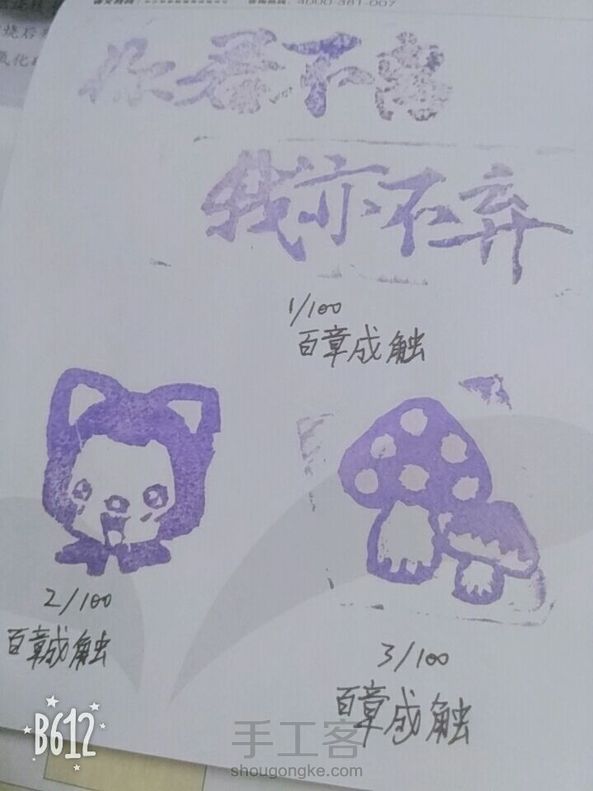 4000-381-007
烧后
氧化
你若不离
我亦不弃
1/100
百章成触
2/100
百章成触
3/100
百章成触
B612
手工客
shougongke.com